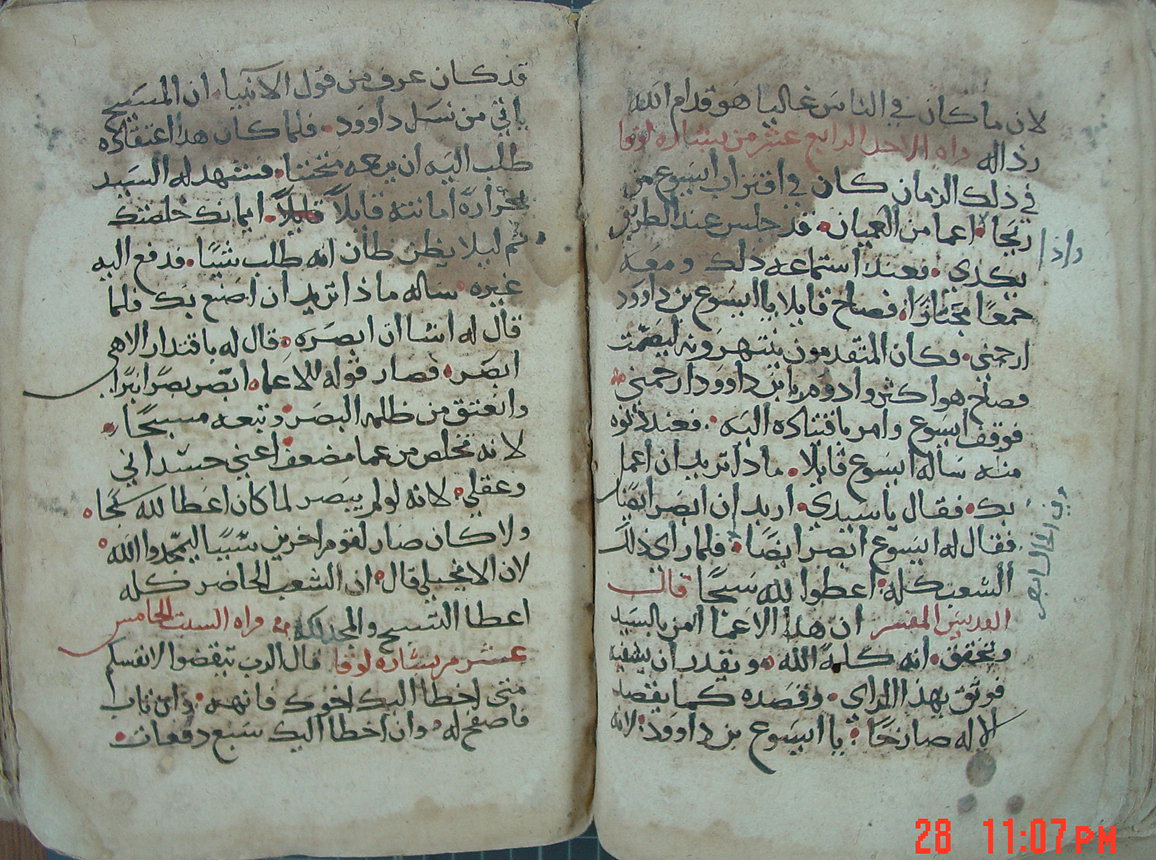 لان ما كان في الناس غاليا هو قدام الله
رذاله قراه الاحد الرابع عشر من بشاره لوقا
في ذلك الزمان كان في اقتراب ايسوع من
ريحا اعما من العميان قد جلس عند الطريق
يكدي فعند استماعه ذلك ومعه
جمعا مجتازا فصاح قايلا يا ايسوع بن داوود
ارحمني فكان المتقدمون ينتهرونه ليصمت
فصاح هو اكثر وادوم يا بن داوود ارحمني
فوقف ايسوع وامر باقتياده اليه فعند دنوه
منه ساله ايسوع قايلا ماذا تريد ان اعمل
بك فقال يا سيدي اريد ان ابصر ايضا
فقال له ايسوع ابصر ايضا فلما راى ذلك
الشعب كله اعطوا لله سبحا قال
القديس المفسر ان هذا الاعما امن بالسيد
وتحقق انه كلمة الله ويقدر ان يشفيه
فوثق بهذا الراي وقصده كما يقصد
الاله صارخا يا ايسوع بن داوود لانه
قد كان عرف من قول الانبيا ان المسيح
ياتي من نسل داوود فلما كان هذا اعتقاده
طلب اليه ان يرحمه متحننا فتشهد له السيد
بحرارة امانته قايلا قايلا ايمانك خلصك
ثم ليلا يظن ظان انه طلب شيا فدفع اليه
غيره ساله ماذا تريد ان اصنع بك فلما
قال له انشا ان ابصره قال له باقتدار الاهي
ابصر فصار قوله للاعما ابصر بصرا
وانعتق من ظلمه البصر وتبعه مسبحا
لانه تخلص من عما مضعف اعني جسداني
وعقلي لانه لو لم يبصر لما كان اعطا لله سبحا
ولا كان صار لقوم اخرين سببا ليمجدوا الله
لان الانجيلي قال ان الشعب الحاضر كله
اعطا التسبيح والمجد لله قراه السبت الخامس
عشر من بشاره لوقا قال الرب تيقضوا لانفسكم
متى اخطا اليك اخوك فانهه وان تاب
فاصفح له وان اخطا اليك سبع دفعات